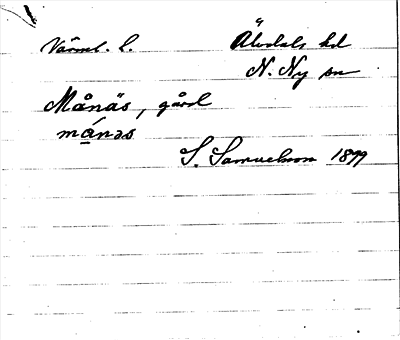 Värml. l. Älvdals hd
N. Ny sn
Månäs, gård
mánəs
S. Samuelsson 1899